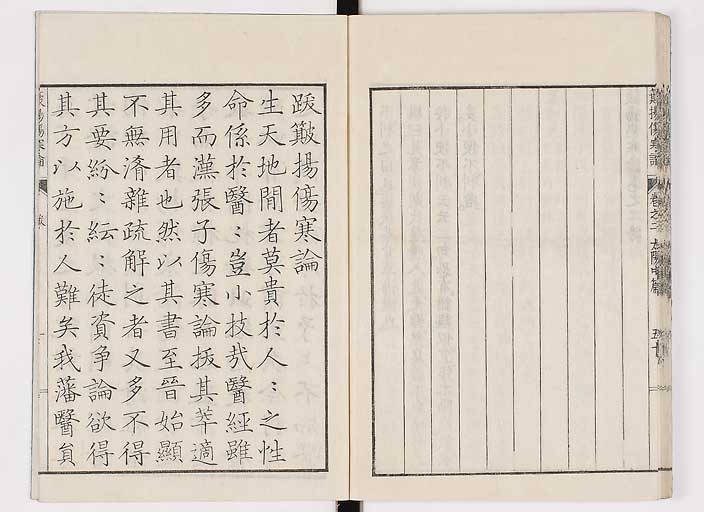 簸揚傷寒論 卷之二 太陽中篇 五十
跋簸揚傷寒論
生天地間者莫貴於人〻之性
命係於醫〻豈小技㦲醫經雖
多而漢張子傷寒論拔其萃適
其用者也然以其書至晉始顯
不無淆雜疏解之者又多不得
其要紛〻紜〻徒資爭論欲得
其方以施於人難矣我藩醫員
跋